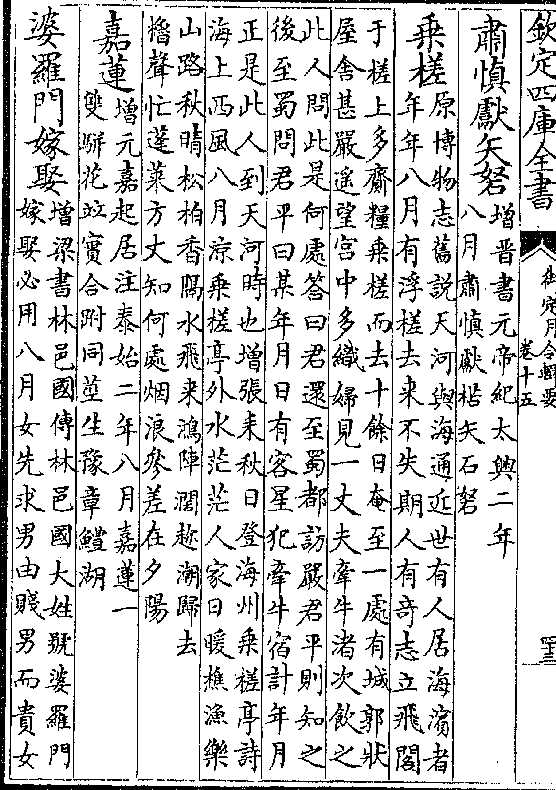 欽定四庫全書
御定月令輯要
卷十五
肅慎獻矢弩
增晉書元帝紀太興二年
八月肅慎獻楛矢石弩
乘槎
原博物志舊說天河與海通近世有人居海濱者
年年八月有浮槎去來不失期人有奇志立飛閣
于槎上多齎糧乘槎而去十餘日奄至一處有城郭狀
屋舍甚嚴遙望宮中多織婦見一丈夫牽牛渚次飲之
此人問此是何處答曰君還至蜀都訪嚴君平則知之
後至蜀問君平曰某年月日有客星犯牽牛宿計年月
正是此人到天河時也增張耒秋日登海州乘槎亭詩
海上西風八月涼乘槎亭外水茫茫人家日暖樵漁樂
山路秋晴松柏香隔水飛来鴻陣濶趂潮歸去
櫓聲忙蓬萊方丈知何處烟浪參差在夕陽
嘉蓮
增元嘉起居注泰始二年八月嘉蓮一
雙駢花竝實合跗同莖生豫章鱧湖
婆羅門嫁娶
增梁書林邑國傳林邑國大姓號婆羅門
嫁娶必用八月女先求男由賤男而貴女